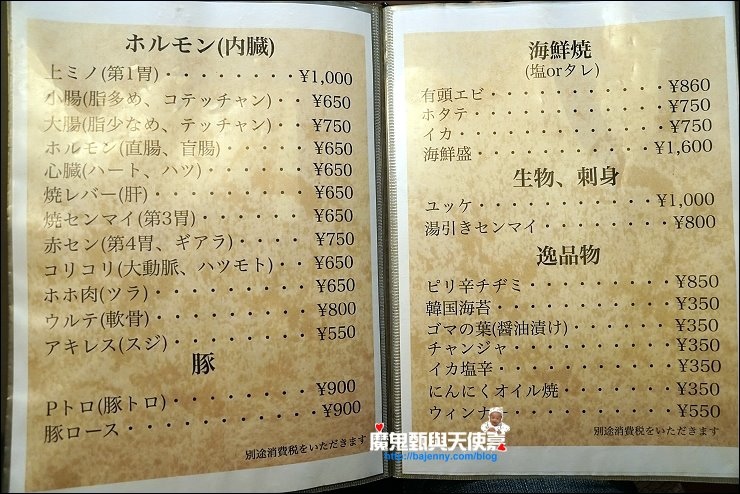 ホルモン(内臓)
上ミノ(第1胃)・・・・・・・・¥1,000
小腸(脂多め、コテッチャン)・・¥650
大腸(脂少なめ、テッチャン)・・¥750
ホルモン(直腸、盲腸)・・・・・¥650
心臓(ハート、ハツ)・・・・・・¥650
焼レバー(肝)・・・・・・・・・¥650
焼センマイ(第3胃)・・・・・・¥650
赤セン(第4胃、ギアラ)・・・・¥750
コリコリ(大動脈、ハツモト)・・¥650
ホホ肉(ツラ)・・・・・・・・・¥650
ウルテ(軟骨)・・・・・・・・・¥800
アキレス(スジ)・・・・・・・・¥550
豚
Pトロ(豚トロ)・・・・・・・・¥900
豚ロース・・・・・・・・・・・¥900
別途消費税をいただきます
海鮮焼
(塩orタレ)
有頭エビ・・・・・・・・・・・¥860
ホタテ・・・・・・・・・・・・¥750
イカ・・・・・・・・・・・・・¥750
海鮮盛・・・・・・・・・・・・¥1,600
生物、刺身
ユッケ・・・・・・・・・・・・¥1,000
湯引きセンマイ・・・・・・・・¥800
逸品物
ピリ辛チヂミ・・・・・・・・・¥850
韓国海苔・・・・・・・・・・・¥350
ゴマの葉(醤油漬け)・・・・・・¥350
チャンジャ・・・・・・・・・・¥350
イカ塩辛・・・・・・・・・・・¥350
にんにくオイル焼・・・・・・・¥350
ウィンナー・・・・・・・・・・¥550
別途消費税をいただきます
魔鬼甄與天使嘉
http://bajenny.com/blog